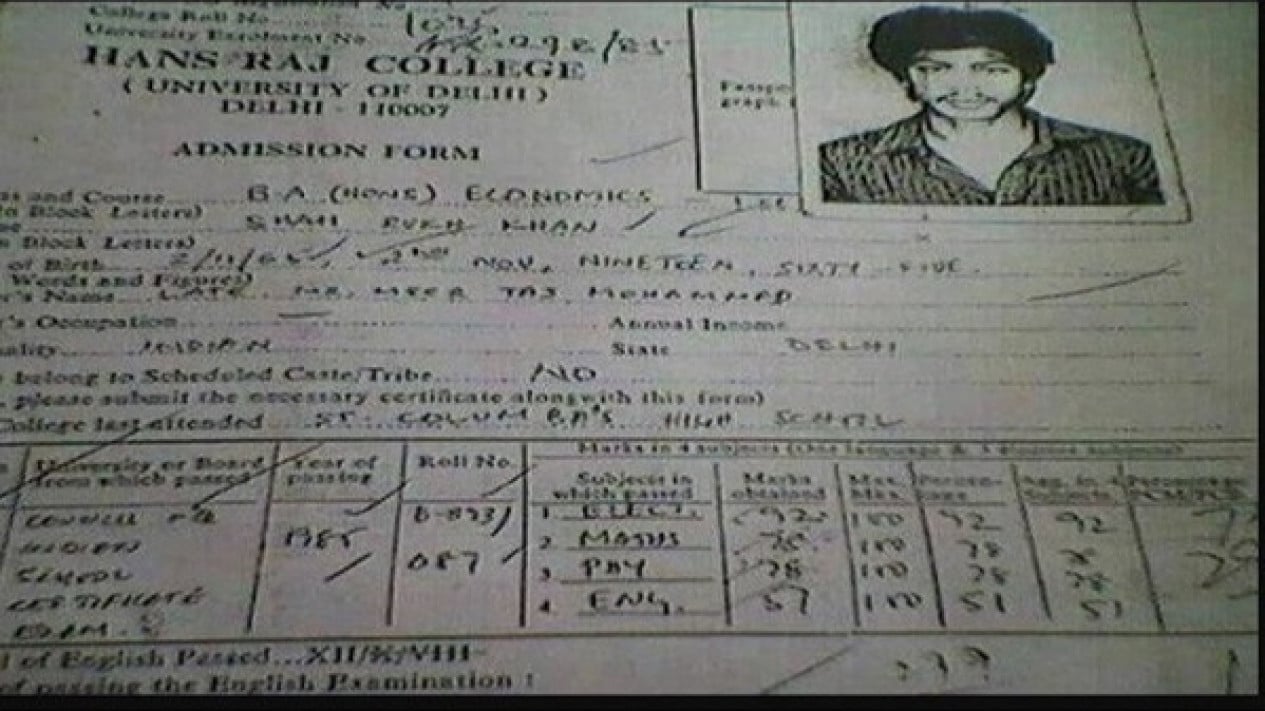 College Roll No.
University Enrolment No. 292/85
HANS RAJ COLLEGE
( UNIVERSITY OF DELHI )
DELHI - 110007
ADMISSION FORM
and Course B.A (HONS) ECONOMICS
Block Letters) SHAH RUKH KHAN
Block Letters)
of Birth 2/11/65 2nd NOV, NINETEEN, SIXTY-FIVE.
Words and Figures)
's Name LATE MR. MEER TAJ MOHAMMAD
's Occupation Annual Income
ality INDIAN State DELHI
belong to Scheduled Caste/Tribe NO
please submit the necessary certificate alongwith this form)
College last attended ST. COLUMBA'S HIGH SCHOOL
Marks in 4 subjects (One language & 3 elective subjects)
University or Board from which passed Year of passing Roll No. Subjects in which passed Marks obtained Max. Percen- tage
COUNCIL 1. ELECT. 92 100 92 92
INDIAN 1985 2. MATHS 78 100 78 78
SCHOOL 087 3. PHY 78 100 78 78
CERTIFICATE 4. ENG. 51 100 51 51
EXAM.
of English Passed...XII/X/VIII
of passing the English Examination :